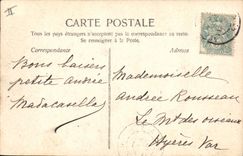 CARTE POSTALE
Tous les pays étrangers n'acceptent pas la correspondance au recto.
Se renseigner à la Poste
Correspondance
Adresse
Bons baisers
petite Andrée
Mademoiselle
Andrée Rousseau
Le Mt des oiseaux
Hyères Var